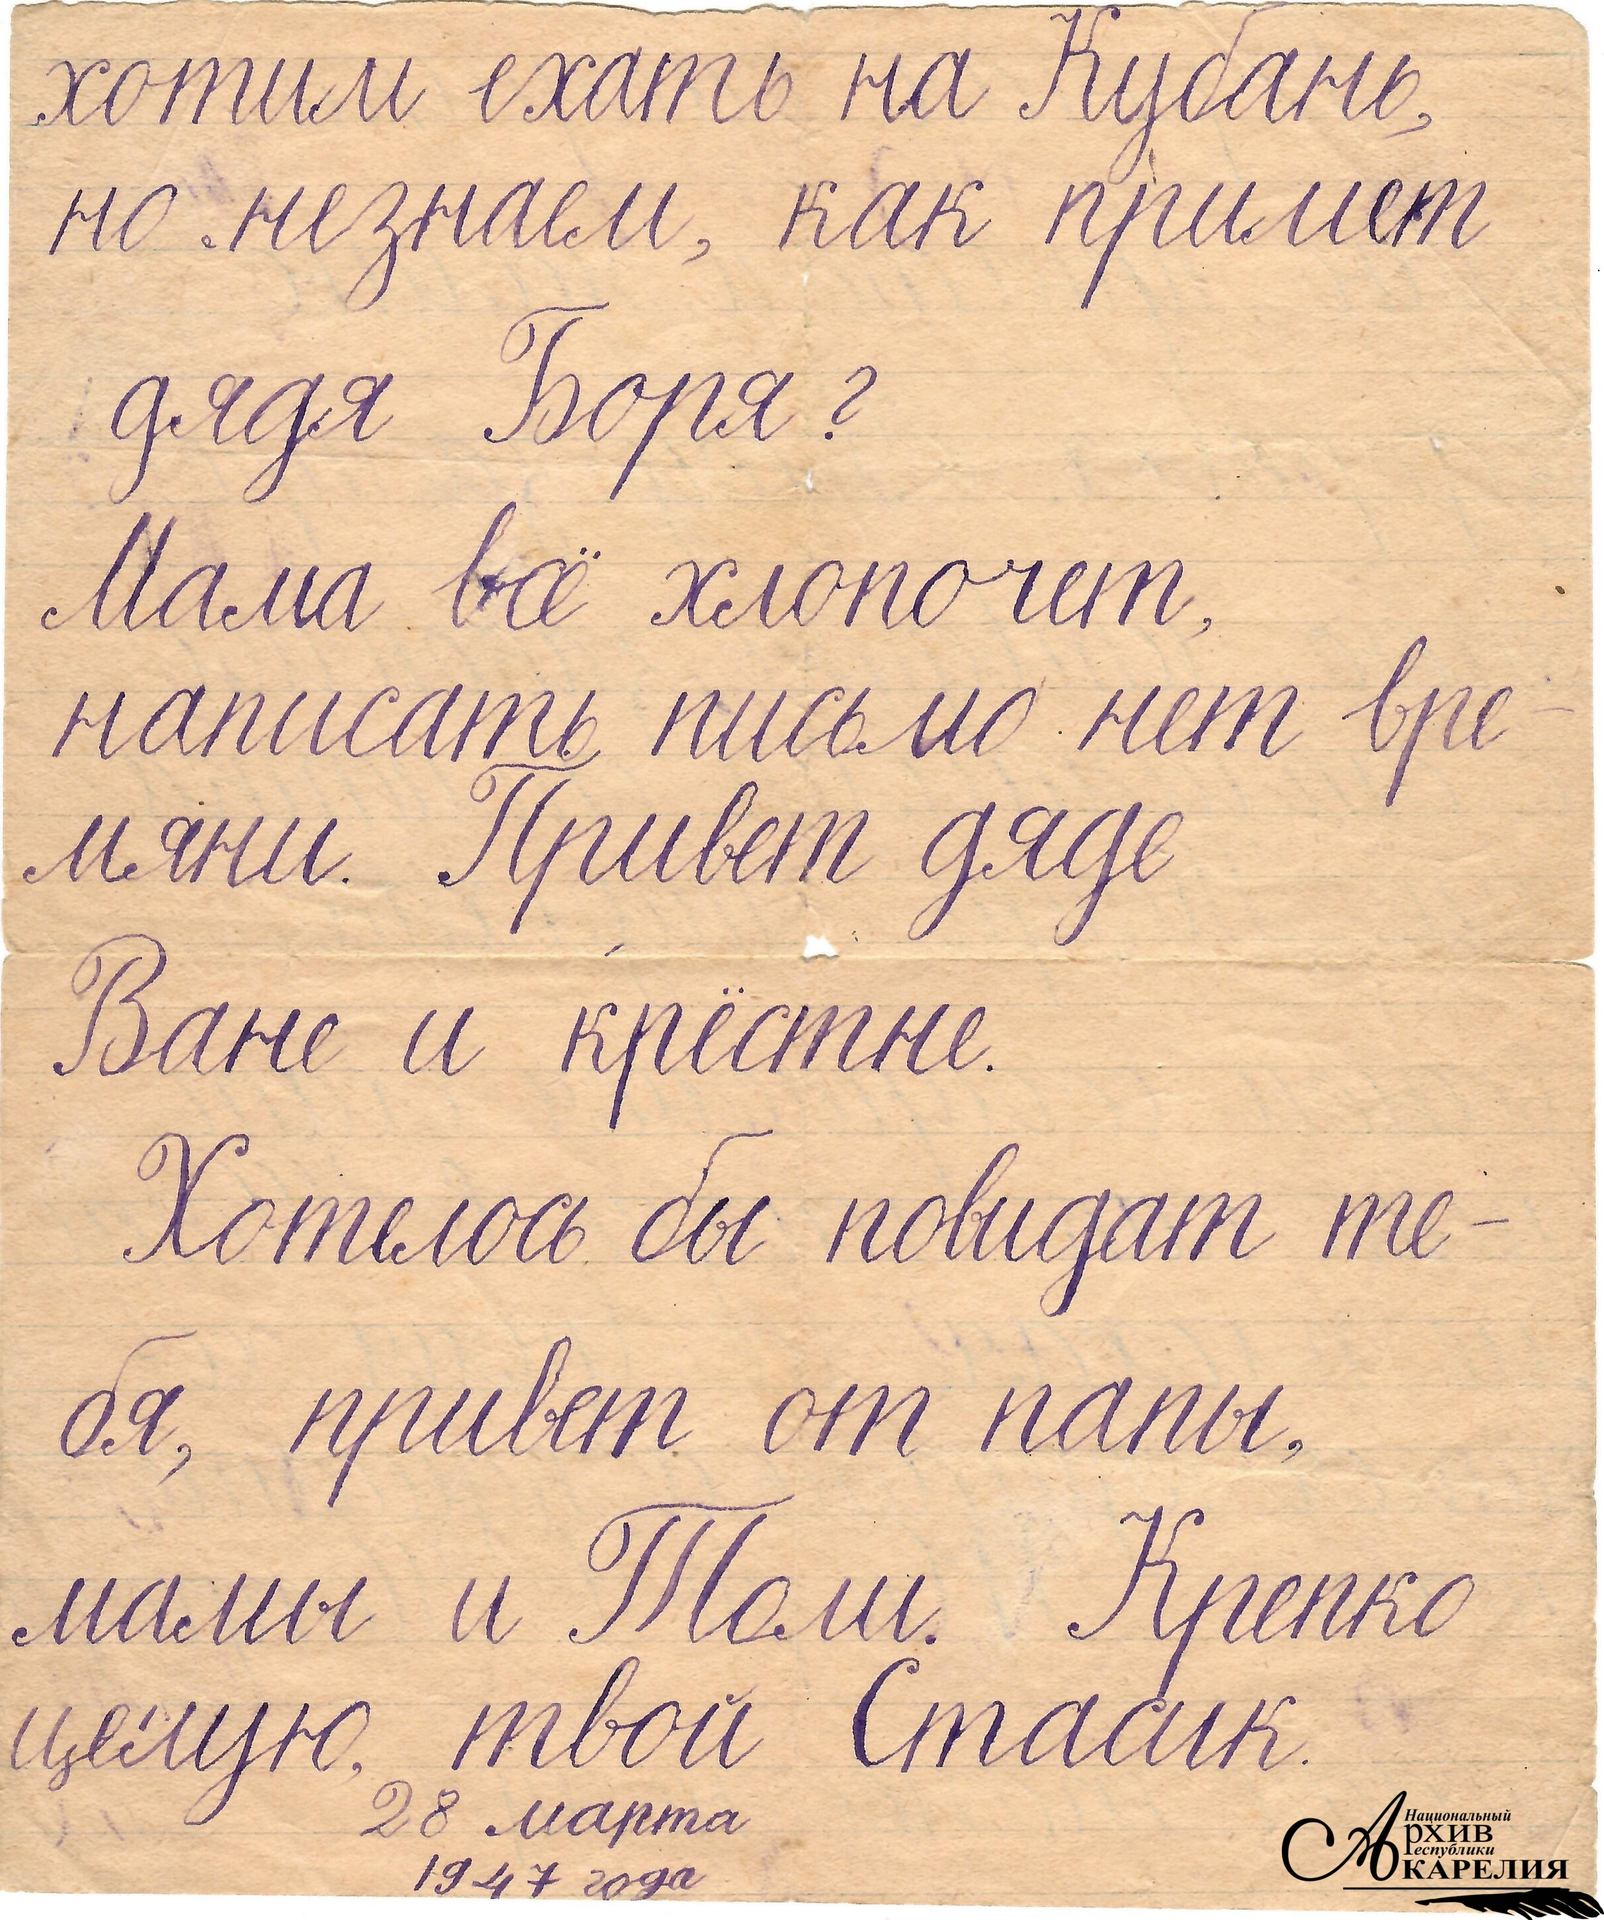 хотим ехать на Кубань,
но незнаем, как примет
дядя Боря?
Мама всё хлопочет,
написать письмо нет вре-
мяни. Привет дяде
Ване и крёстне.
Хотелось бы повидат те-
бя, привет от папы,
мамы и Толи. Крепко
целую, твой Стасик.
28 марта
1947 года
Национальный
Архив
Республики
Карелия